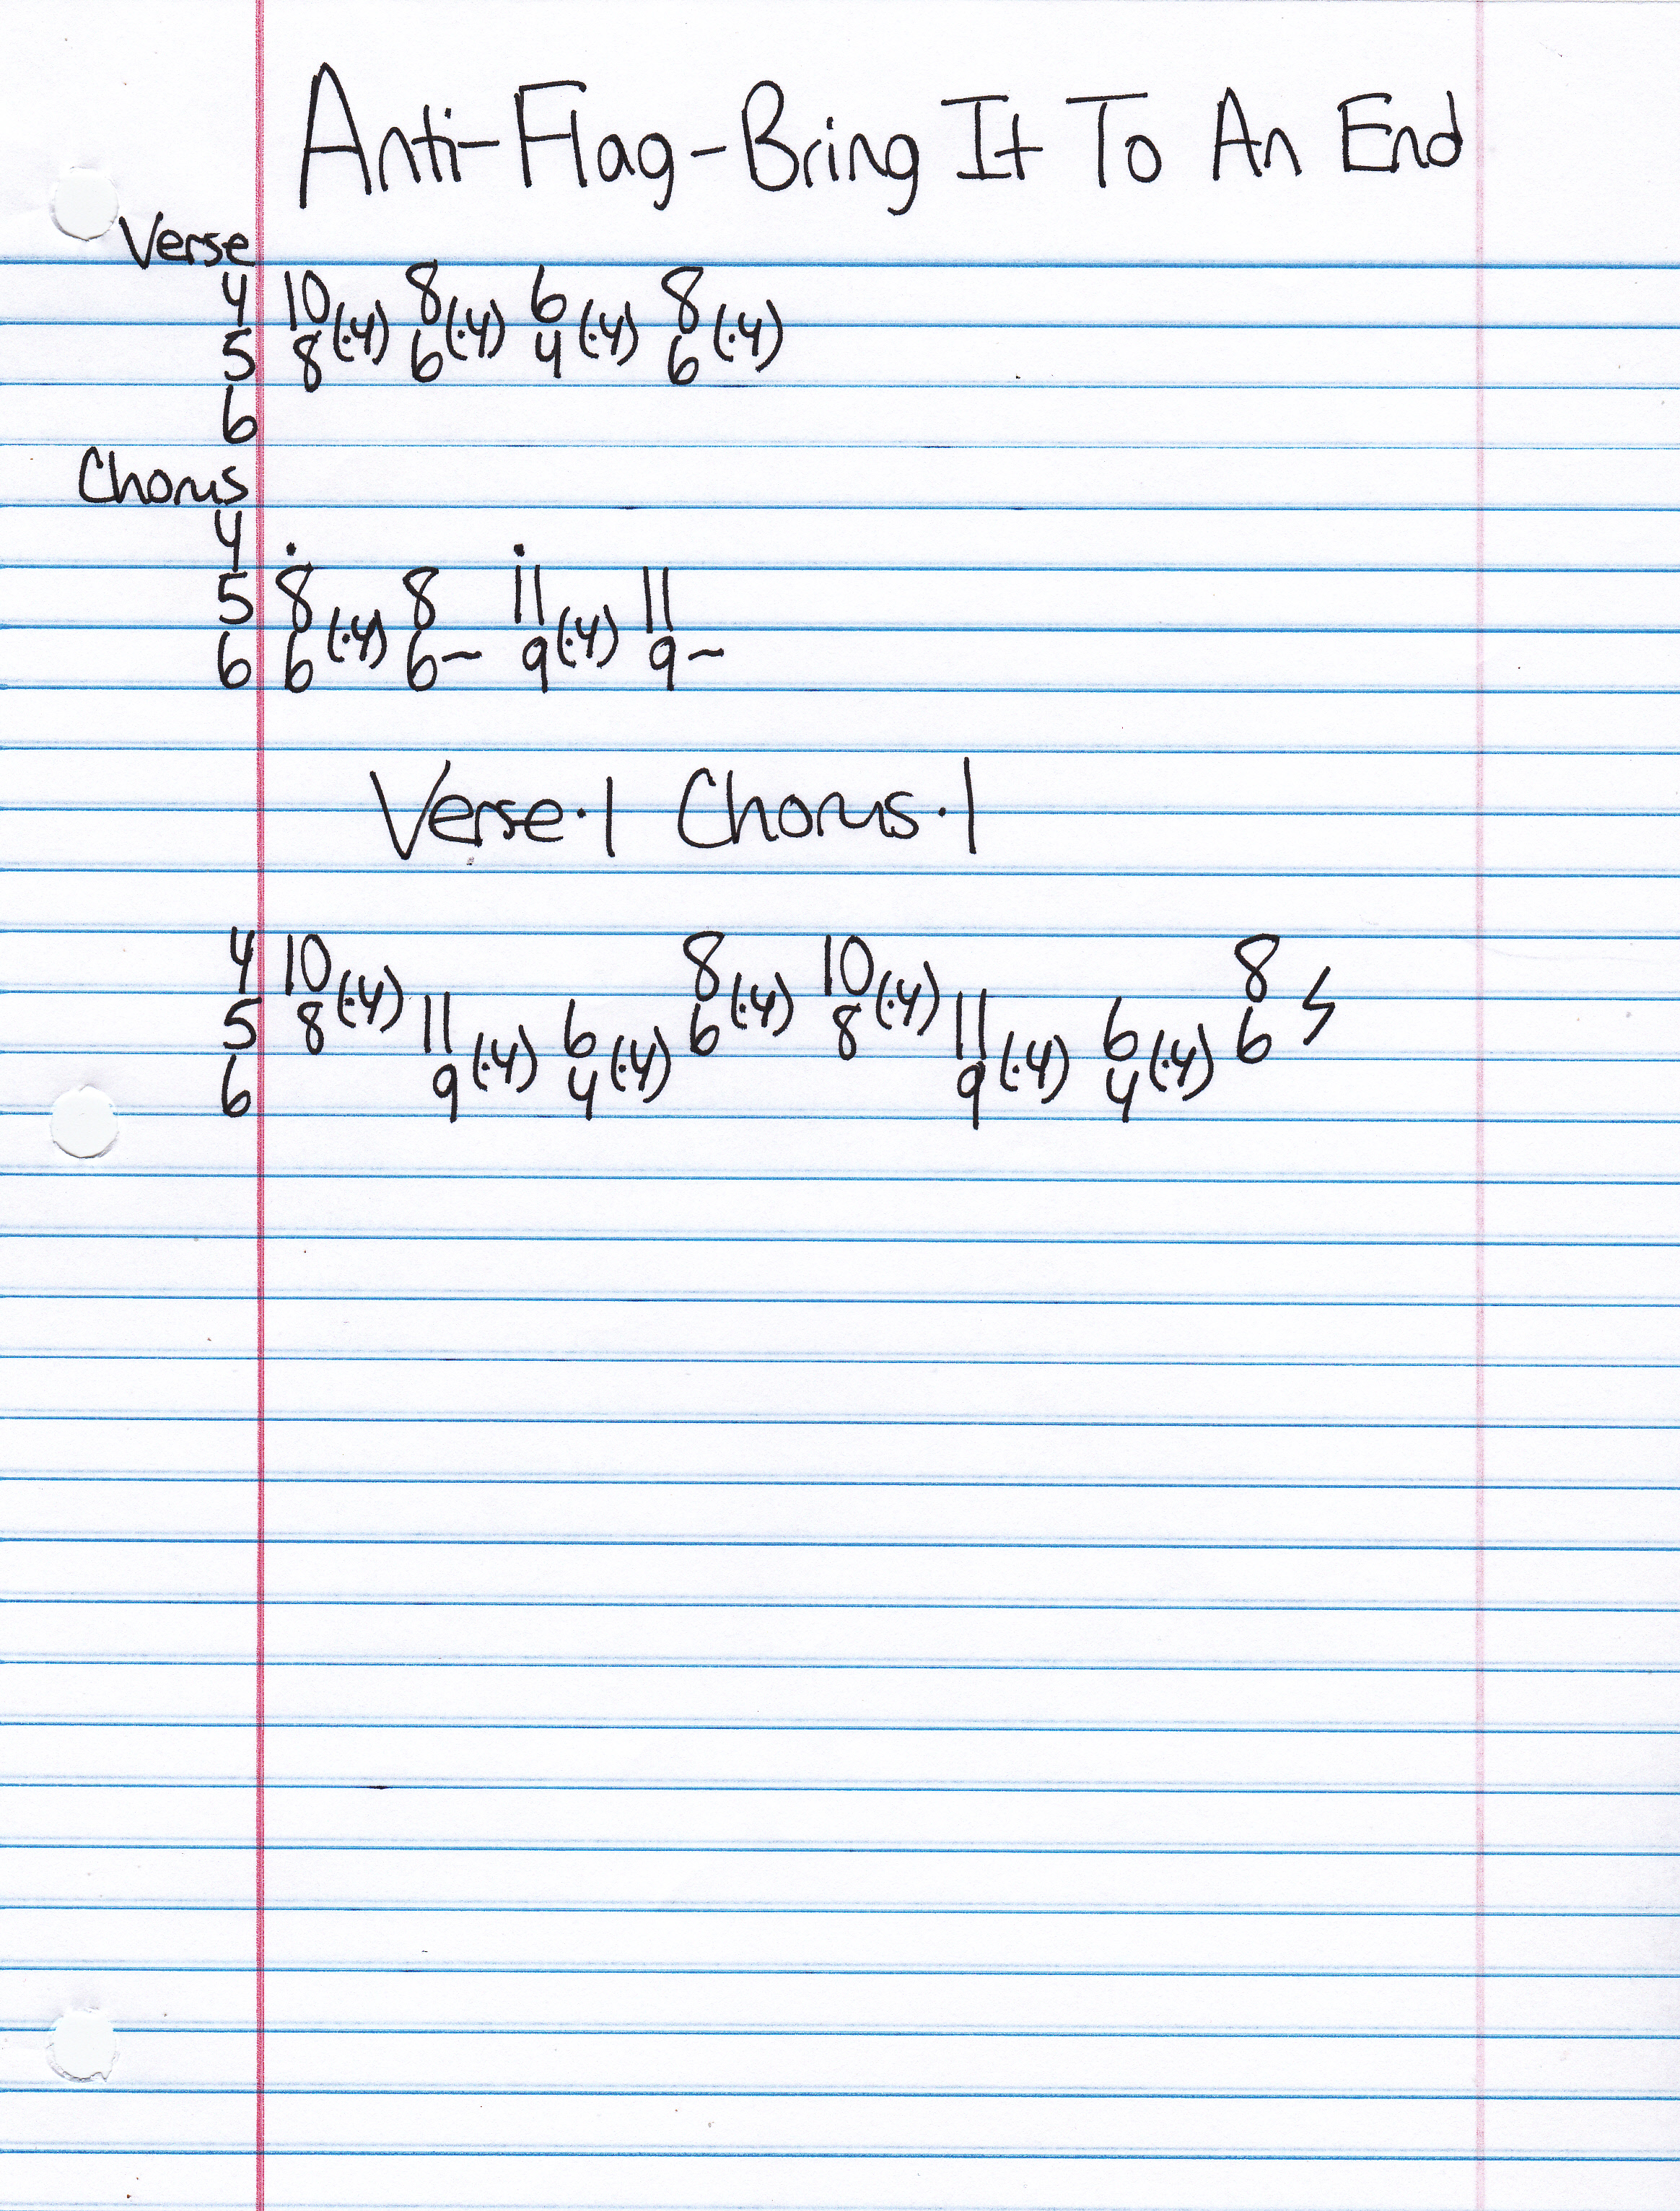 Anti-Flag-Bring It To An End
Verse
4 10 8 6 8
(·4) (·4) (·4) (·4)
5 8 6 4 6
6
Chorus
4 · ·
5 8 8 11 11
(·4) (·4)
6 6 6- 9 9-
Verse·1 Chorus·1
4 10 8 10 8
(·4) (·4) (·4)
5 8 11 6 6 8 11 6 6
(·4) (·4) (·4) (·4)
6 9 4 9 4